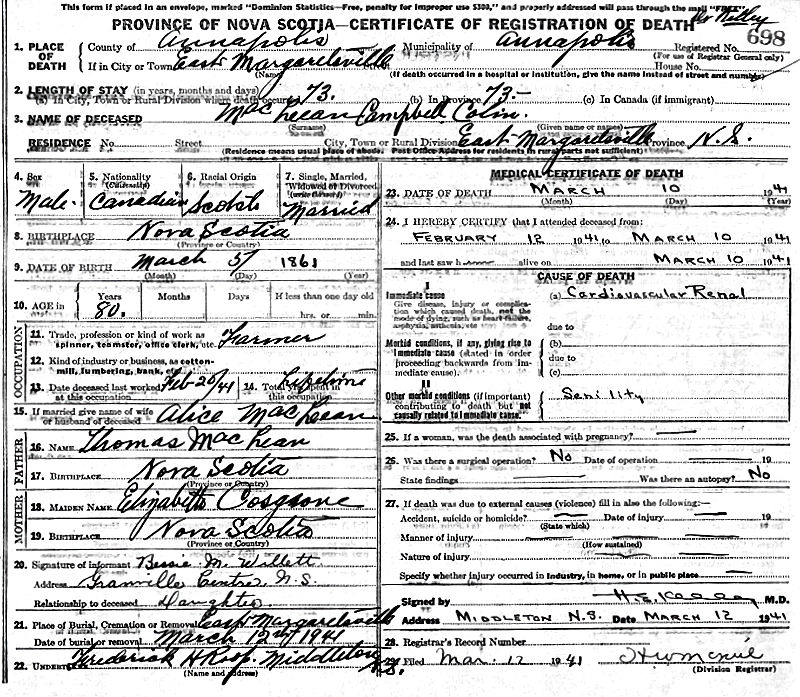 This form if placed in an envelope, marked "Dominion Statistics—Free, penalty for improper use $300," and properly addressed will pass through the mail "FREE"
PROVINCE OF NOVA SCOTIA—CERTIFICATE OF REGISTRATION OF DEATH
1. PLACE OF DEATH County of Annapolis Municipality of Annapolis Registered No. 698
(For use of Registrar General only)
If in City or Town East Margaretsville House No.
(Name) (If death occurred in a hospital or institution, give the name instead of street and number)
2. LENGTH OF STAY (in years, months and days)
(a) In City, Town or Rural Division where death occurred 73. (b) In Province 73.— (c) In Canada (if immigrant)
3. NAME OF DECEASED MacLean Campbell Colin.
(Surname) (Given name or names)
RESIDENCE No. Street City, Town or Rural Division East Margaretsville Province N.S.
(Residence means usual place of abode. Post Office Address for residents in rural parts not sufficient)
4. Sex Male.
5. Nationality (Citizenship) Canadian
6. Racial Origin Scotch
7. Single, Married, Widowed or Divorced (write the word) Married
8. BIRTHPLACE Nova Scotia
(Province or Country)
9. DATE OF BIRTH March 5 1861
(Month) (Day) (Year)
10. AGE in Years Months Days If less than one day old
80. hrs. or min.
OCCUPATION
11. Trade, profession or kind of work as spinner, teamster, office clerk, etc. Farmer
12. Kind of industry or business, as cotton-mill, lumbering, bank, etc.
13. Date deceased last worked at this occupation Feb 20/41 14. Total yrs. spent in this occupation Lifetime
15. If married give name of wife or husband of deceased Alice MacLean
FATHER
16. NAME Thomas MacLean
17. BIRTHPLACE Nova Scotia
(Province or Country)
MOTHER
18. MAIDEN NAME Elizabeth Cosgrove
19. BIRTHPLACE Nova Scotia
(Province or Country)
20. Signature of informant Bessie M. Willett
Address Granville Centre, N.S.
Relationship to deceased Daughter
21. Place of Burial, Cremation or Removal East Margaretsville
Date of burial or removal March 12th 1941
22. UNDERTAKER Frederick H Roop. Middleton N.S.
(Name and address)
MEDICAL CERTIFICATE OF DEATH
23. DATE OF DEATH MARCH 10 1941
(Month) (Day) (Year)
24. I HEREBY CERTIFY that I attended deceased from:
FEBRUARY 12 1941 to MARCH 10 1941
and last saw h alive on MARCH 10 1941
CAUSE OF DEATH
I
Immediate cause (a) Cardiovascular Renal
Give disease, injury or complication which caused death, not the mode of dying, such as heart failure, asphyxia, asthenia, etc
due to
Morbid conditions, if any, giving rise to immediate cause (stated in order proceeding backwards from immediate cause). (b)
due to
(c)
II
Other morbid conditions (if important) contributing to death but not causally related to immediate cause. Senility
25. If a woman, was the death associated with pregnancy? —
26. Was there a surgical operation? No Date of operation — 19
State findings — Was there an autopsy? No
27. If death was due to external causes (violence) fill in also the following:—
Accident, suicide or homicide? — Date of injury — 19
(State which)
Manner of injury —
(How sustained)
Nature of injury —
Specify whether injury occurred in industry, in home, or in public place —
Signed by H.E. Kelley M.D.
Address MIDDLETON N.S. Date MARCH 12 1941
28. Registrar's Record Number
29. Filed Mar. 12 1941
(Division Registrar)